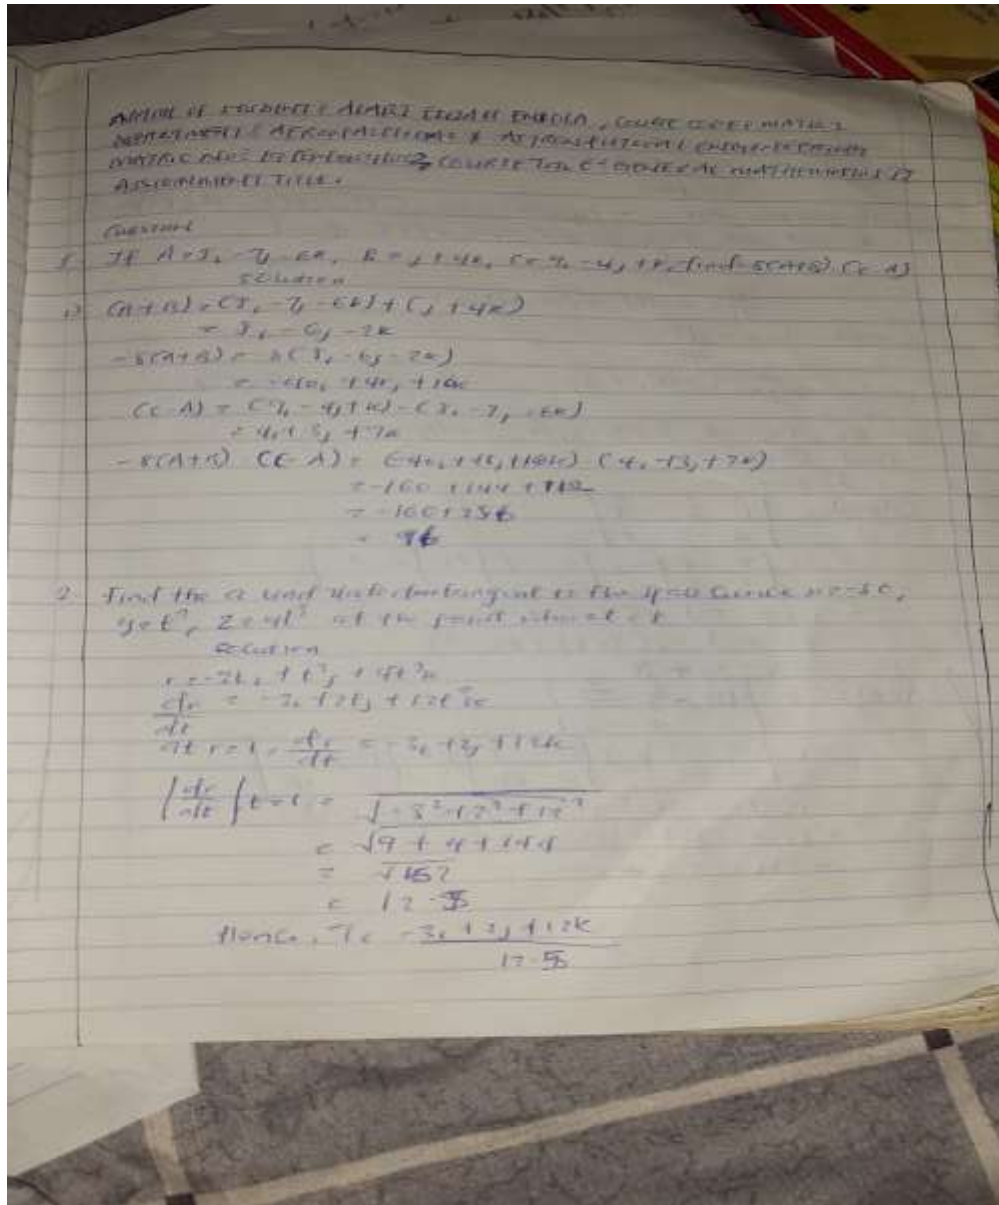 NAME OF STUDENT: COURSE CODE: MAT
DEPARTMENT: AERONAUTICAL & ASTRONAUTICAL ENGINEERING
MATRIC NO: COURSE TITLE: MATHEMATICS
ASSIGNMENT TITLE.
QUESTION
1. If A = 5i - 7j - 6k, B = j + 4k, C = 9i - 4j + k, find -8(A+B) (C-A)
Solution
(A+B) = (5i - 7j - 6k) + (j + 4k)
= 5i - 6j - 2k
-8(A+B) = 8(5i - 6j - 2k)
= -40i + 48j + 16k
(C-A) = (9i - 4j + k) - (5i - 7j - 6k)
= 4i + 3j + 7k
-8(A+B) (C-A) = (-40i + 48j + 16k) (4i + 3j + 7k)
= -160 + 144 + 112
= -160 + 256
= 96
2. Find the unit tangent to the space curve x = -3t,
y = t², z = 4t³ at the point where t = 1
Solution
r = -3ti + t²j + 4t³k
dr/dt = -3i + 2tj + 12t²k
at t = 1, dr/dt = -3i + 2j + 12k
|dr/dt| t=1 = √-3² + 2² + 12²
= √9 + 4 + 144
= √157
= 12.5
Hence, T = -3i + 2j + 12k
12.5